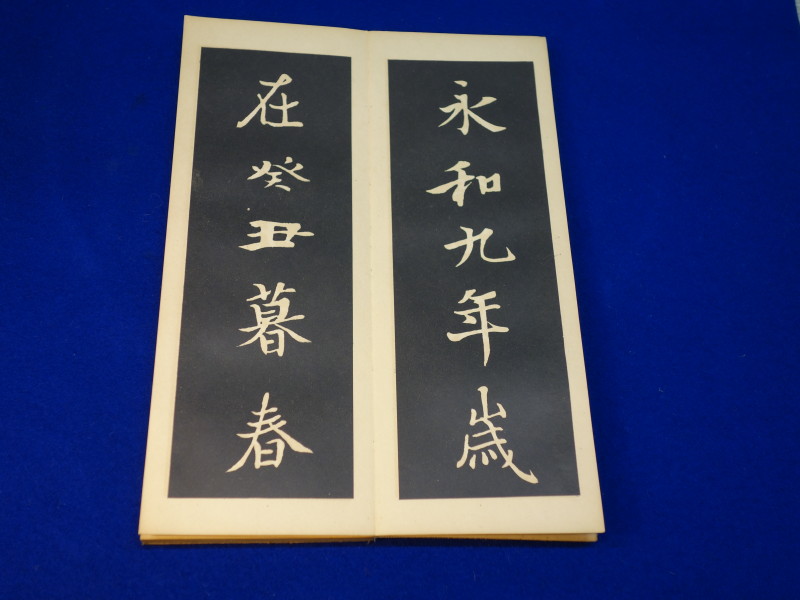 永和九年歳
在癸丑暮春